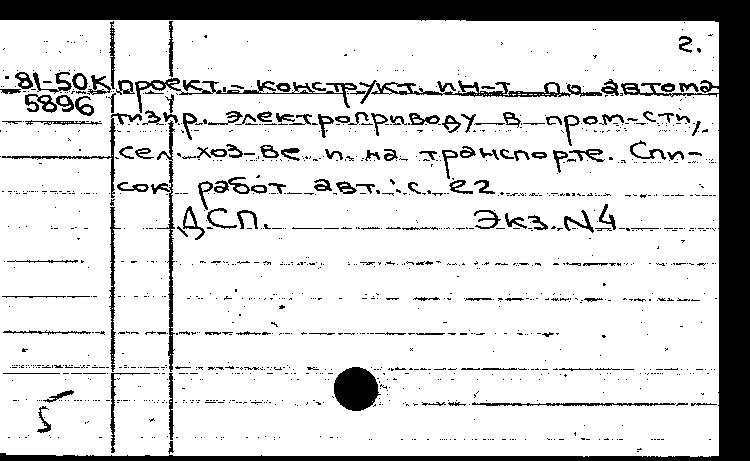 2.
81-50К проект.-конструкт. ин-т по автома
5896 тизир. электроприводу в пром-сти,
сел. хоз-ве и на транспорте. Спи-
сок работ авт.: с. 22
ДСП. Экз. N4
5